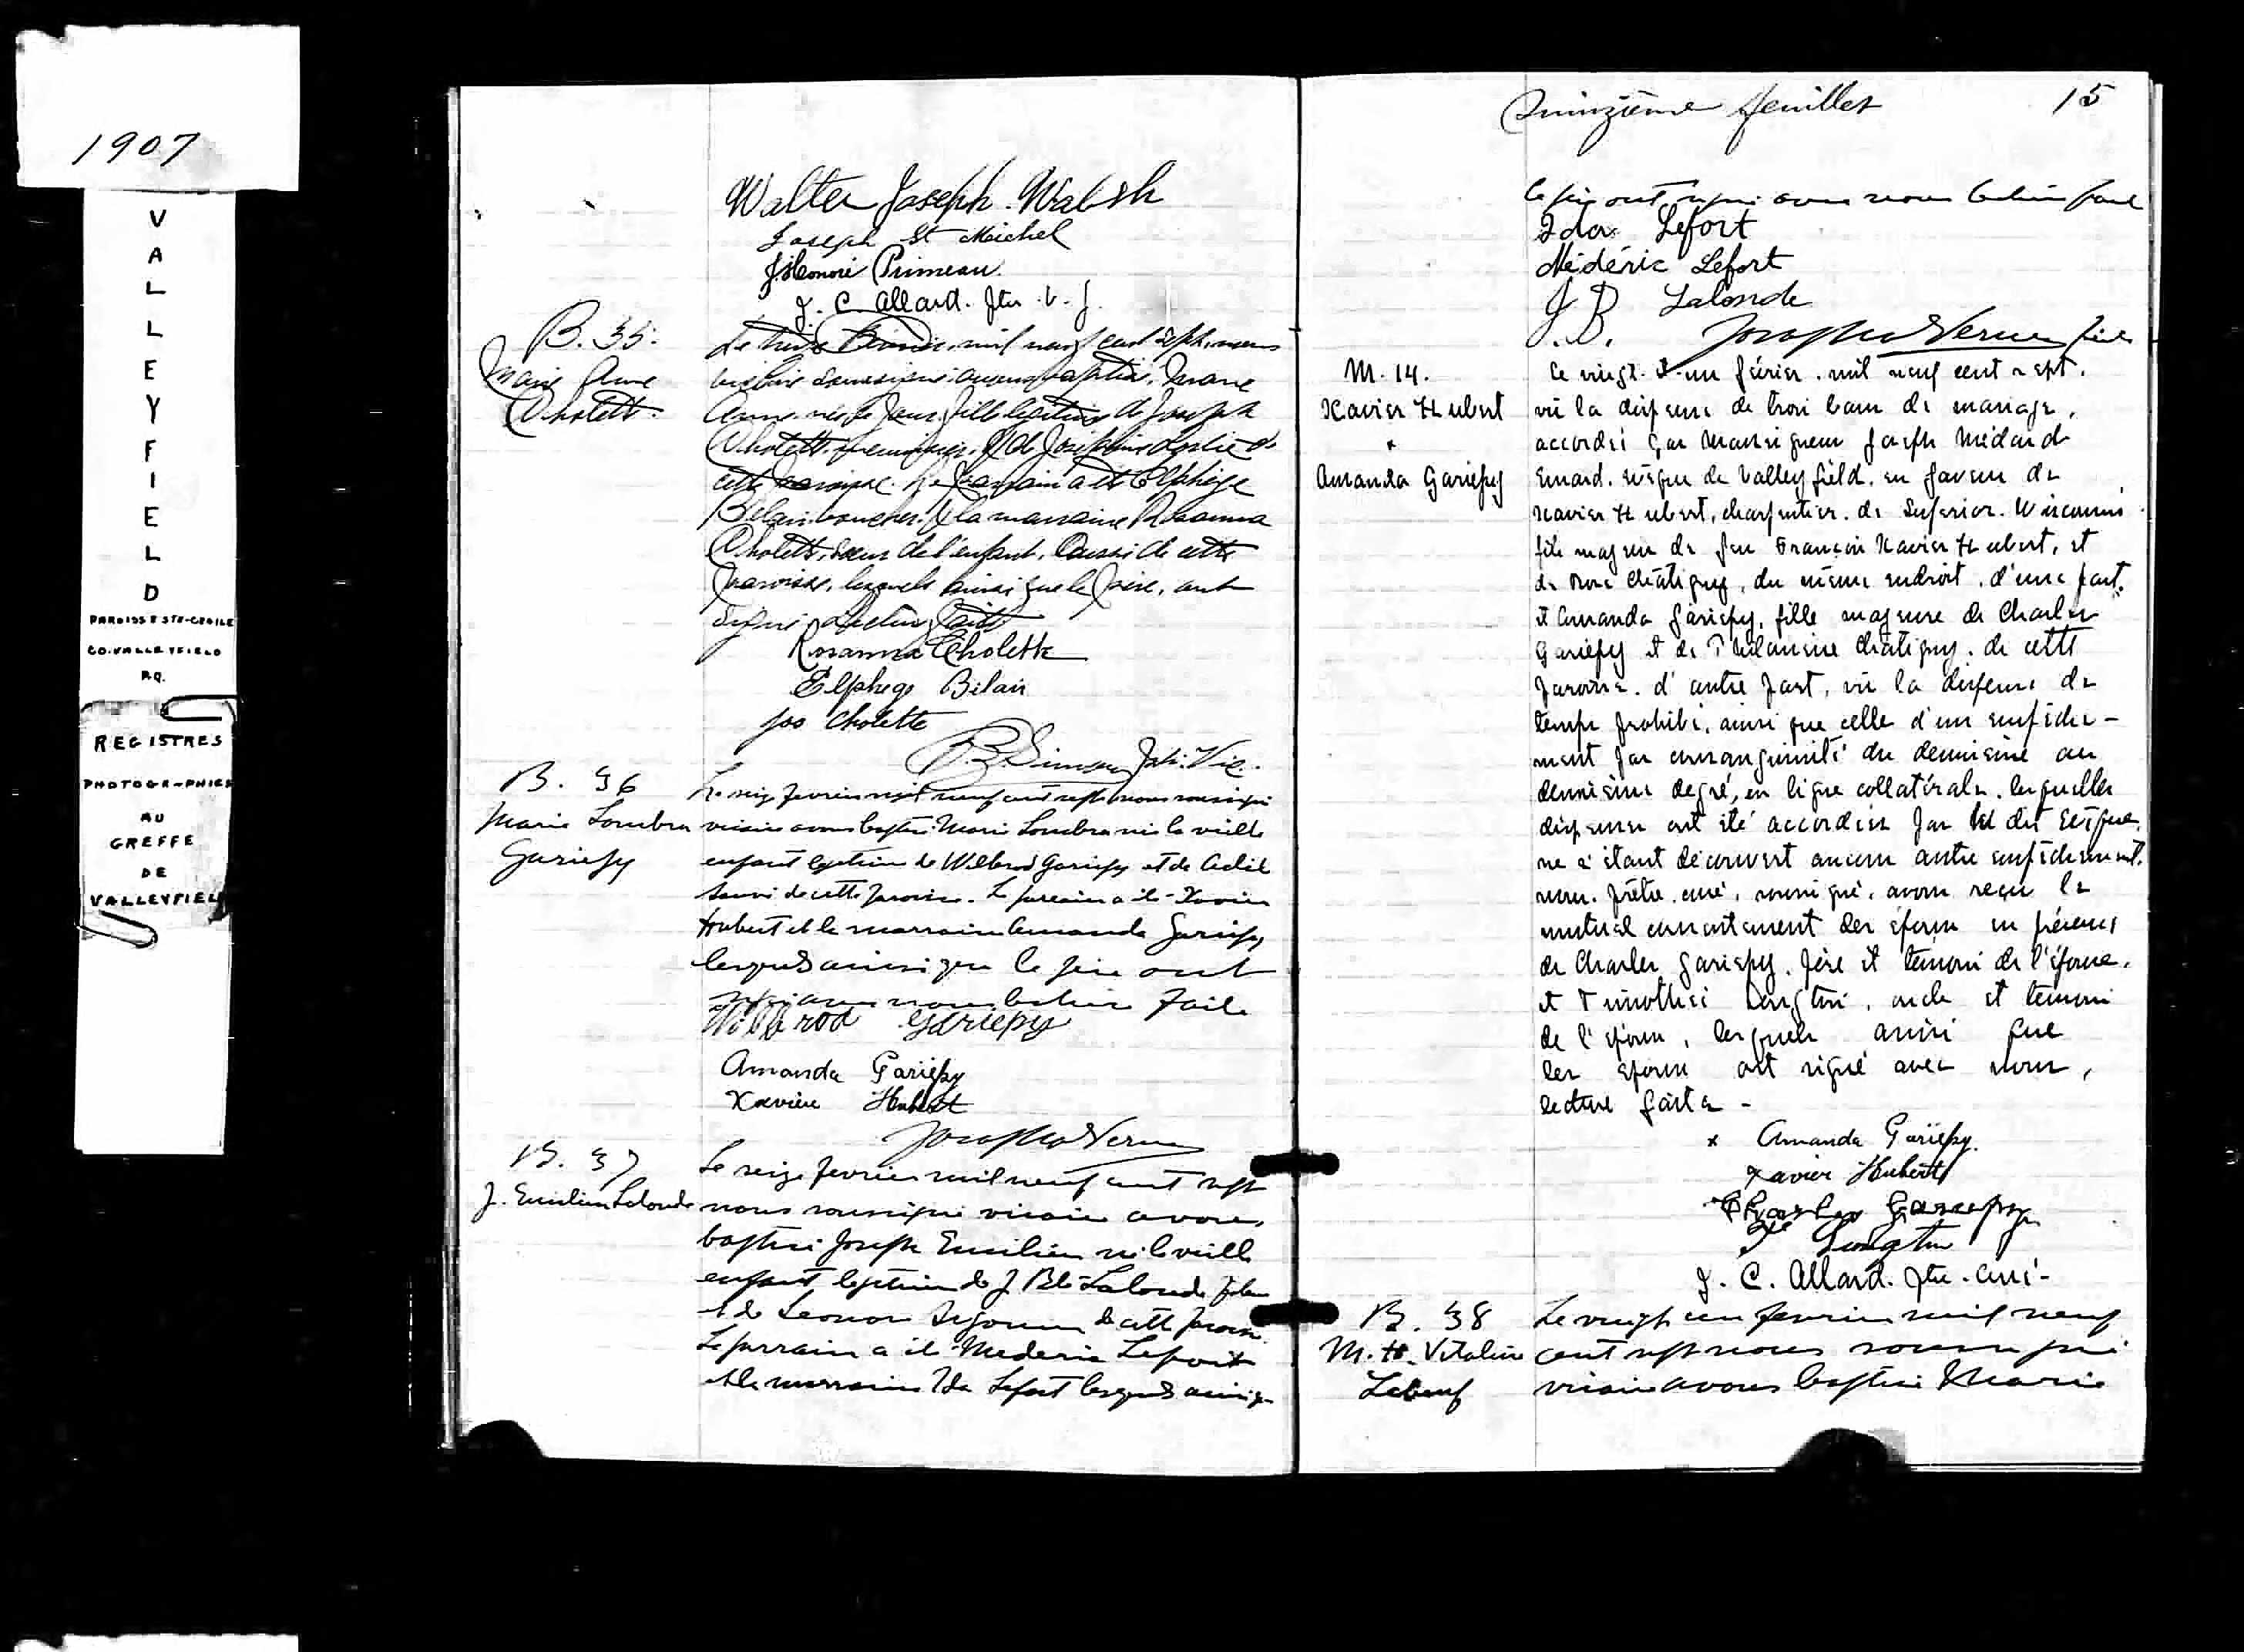 1907
VALLEYFIELD
PAROISSE STE-CECILE
CO. VALLEYFIELD
P.Q.
REGISTRES
PHOTOGRAPHIES
AU
GREFFE
DE
VALLEYFIEL
Walter Joseph Walsh
Joseph St Michel
J. Honoré Primeau
J. C. Allard. Ptre
B. 35.
Marie Anne
Cholette.
Le mil neuf cent sept, nous
vicaire soussigné avons baptisé, Marie
Anne née ce jour, fille légitime de Joseph
Cholette & de Joséphine de
cette paroisse. Le parrain a été Elphège
Bélair boucher & la marraine Rosanna
Cholette, soeur de l'enfant, aussi de cette
paroisse, lesquels ainsi que le père, ont
signé. Lecture faite
Rosanna Cholette
Elphege Bélair
Jos Cholette
B. 36
Marie Lombra
Gariepy
Le seize fevrier mil neuf cent sept nous soussigné
vicaire avons baptisé Marie Lombra née la veille
enfant légitime de Wilbrod Gariepy et de
de cette paroisse. Le parrain a été Xavier
Hubert et la marraine Amanda Gariepy
lesquels ainsi que le père ont
signé avec nous lecture faite
Wilbrod Gariepy
Amanda Gariépy
Xavière Hubert
B. 37
J. Emilien Lalonde
Le seize fevrier mil neuf cent sept
nous soussigné vicaire avons
baptisé Joseph Emilien né la veille
enfant légitime de J Bte Lalonde
et de de cette paroisse
Le parrain a été Mederic Lefort
et la marraine Ida Lefort lesquels ainsi que
Quinzième feuillet 15
le père ont signé avec nous lecture faite
Ida Lefort
Médéric Lefort
J. B. Lalonde
M. 14.
Xavier Hubert
+
Amanda Gariepy
Ce vingt-et-un février. mil neuf cent sept.
vû la dispense de trois bans de mariage,
accordée par Monseigneur Joseph Médard
Emard. évêque de Valleyfield. en faveur de
Xavier Hubert, charpentier. de Superior. Wisconsin
fils majeur de feu François Xavier Hubert, et
de Rose Châtigny, du même endroit. d'une part.
et Amanda Gariepy, fille majeure de Charles
Gariepy et de Philomène Châtigny. de cette
paroisse. d'autre part, vû la dispense de
temps prohibé, ainsi que celle d'un empêche-
ment par consanguinité du deuxième au
deuxième degré, en ligne collatérale. lesquelles
dispenses ont été accordées par le dit Evêque.
ne s'étant découvert aucun autre empêchement.
nous. prêtre. curé, soussigné, avons reçu le
mutuel consentement des époux en présence
de Charles Gariepy. père et témoin de l'épouse.
et Timothée Longtin, oncle et témoin
de l'époux, lesquels ainsi que
les époux ont signé avec nous,
lecture faite -
x Amanda Gariépy.
Xavier Hubert
Charles Gariepy
T Longtin
J. C. Allard. Ptre. curé-
B. 38
M. H. Vitaline
Lebeuf
Le vingt un fevrier mil neuf
cent sept nous soussigné
vicaire avons baptisé Marie